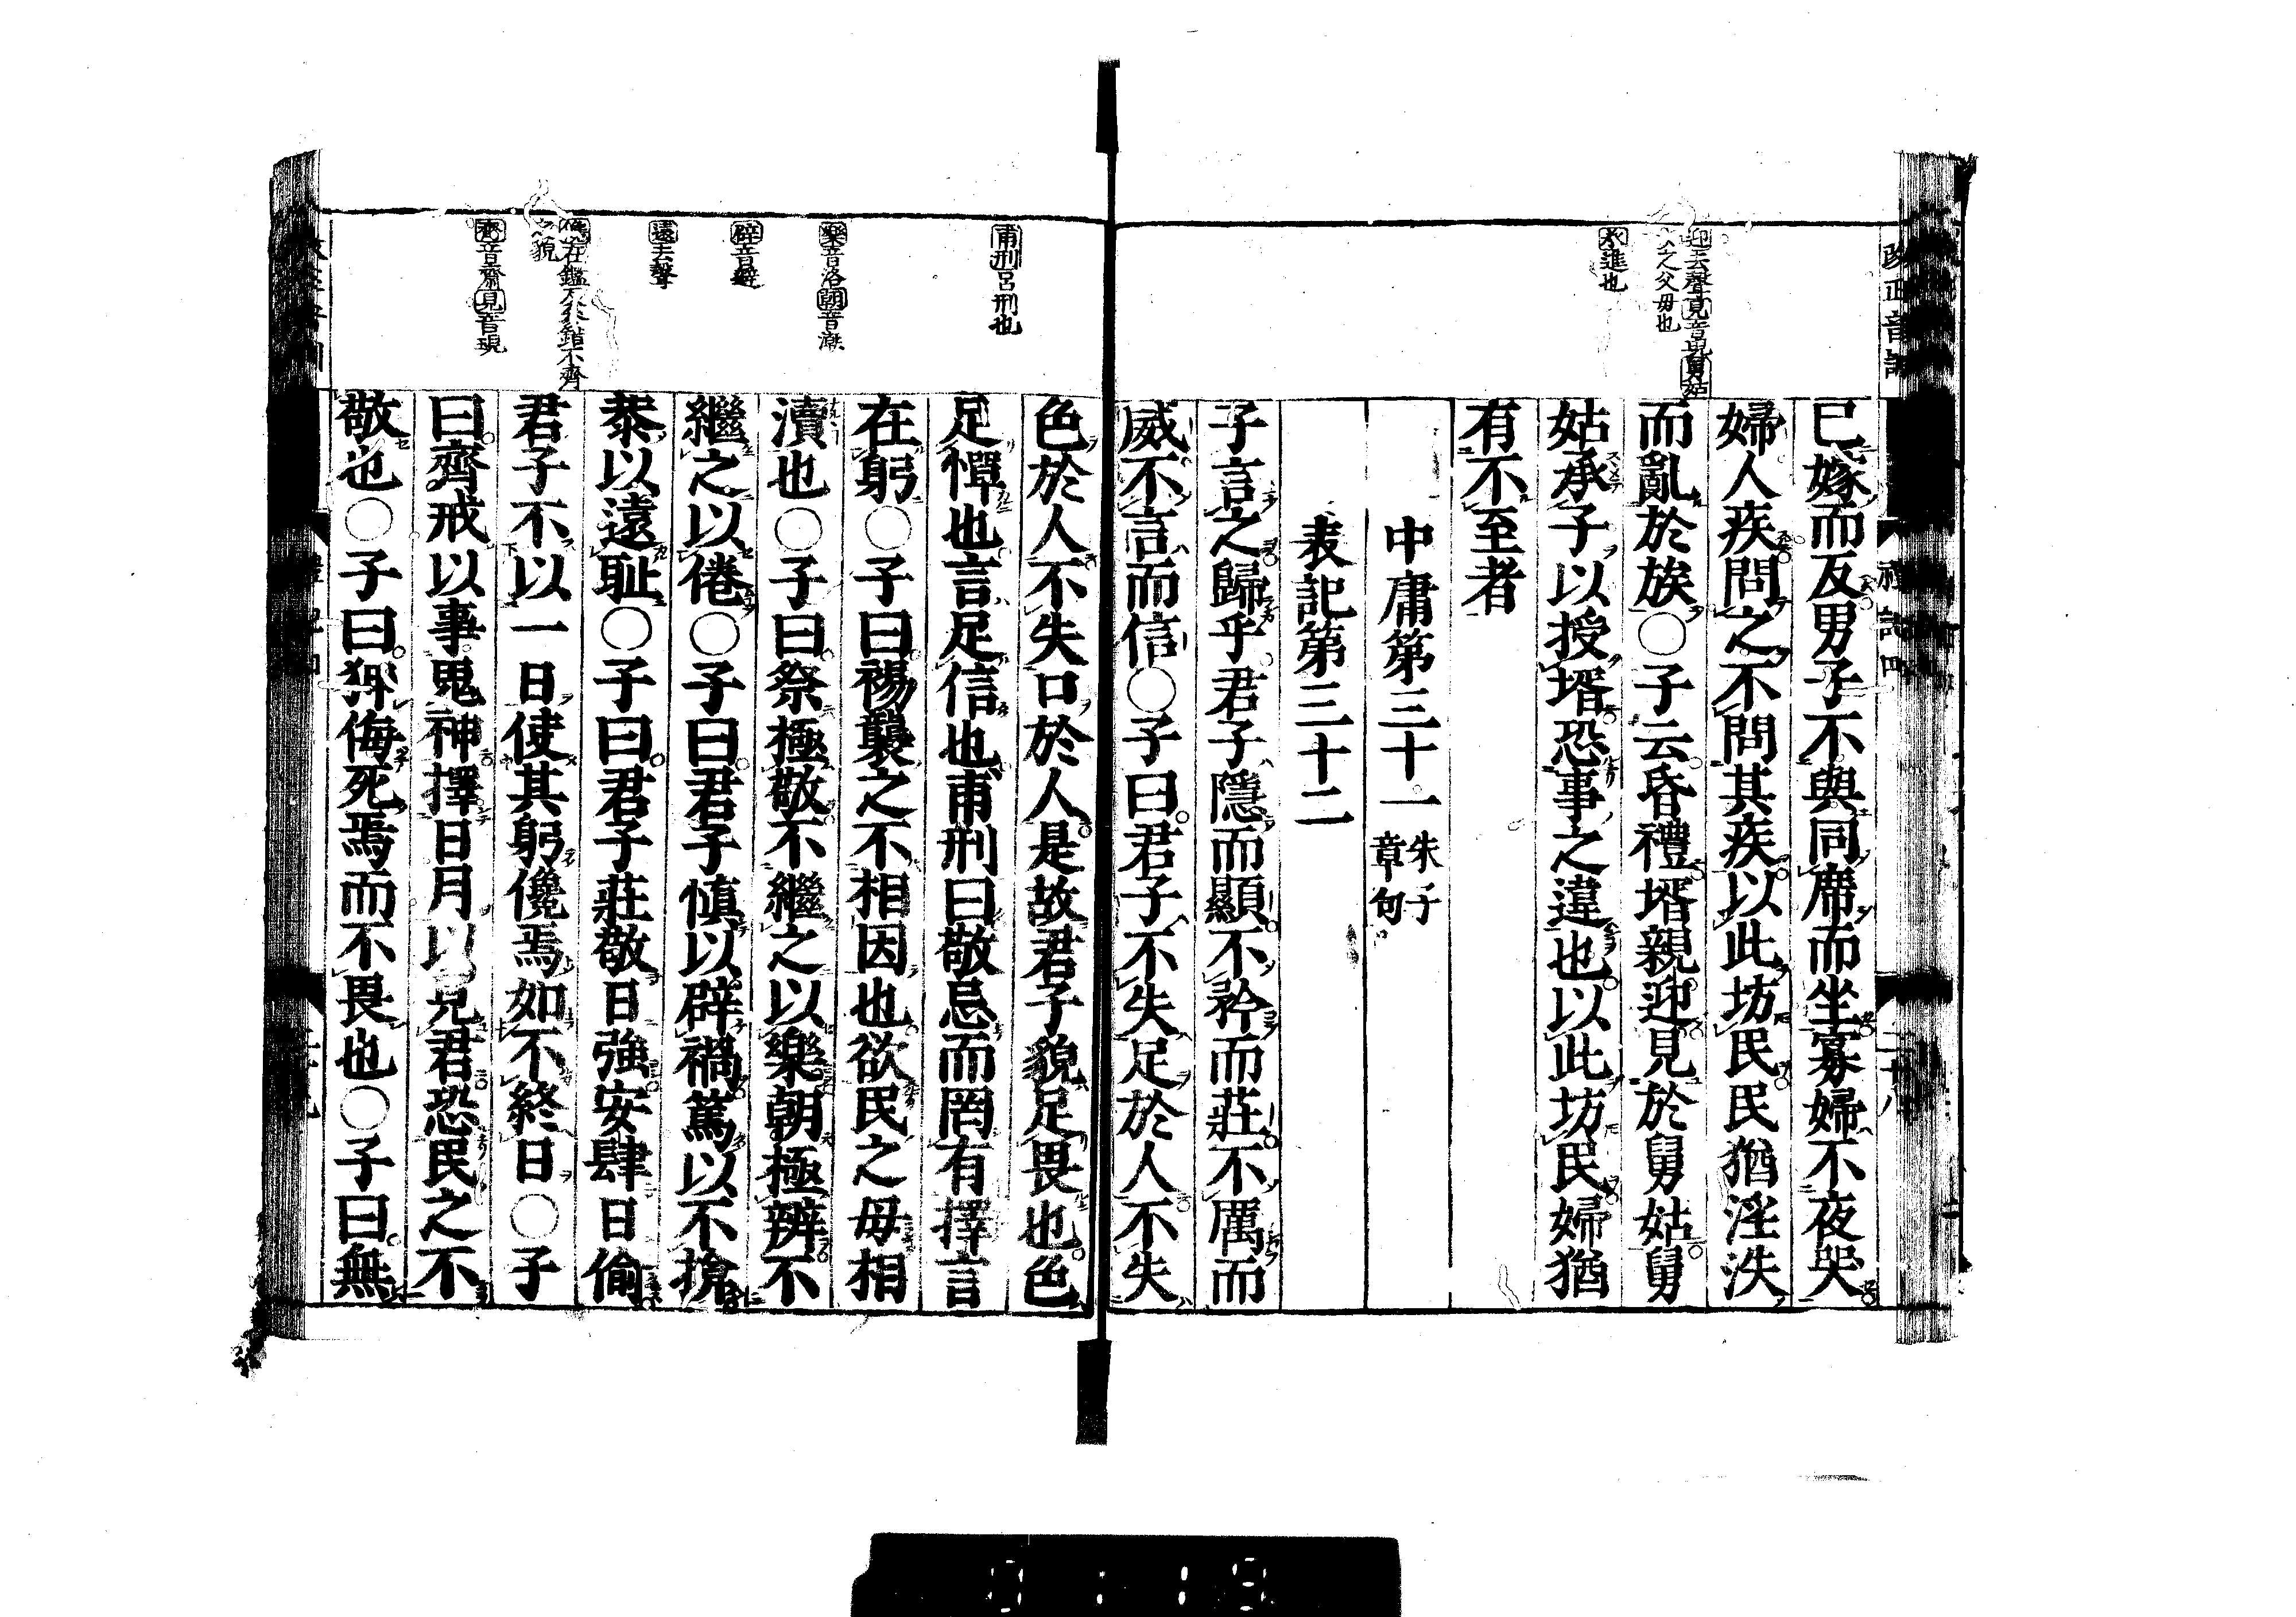 改正音訓
禮記四
二十八
迎去聲見音現舅姑
父母也
承進也
已嫁而反男子不與同席而坐寡婦不夜哭
婦人疾問之不問其疾以此坊民民猶淫泆
而亂於族○子云昏禮壻親迎見於舅姑舅
姑承子以授壻恐事之違也以此坊民婦猶
有不至者
中庸第三十一朱子章句
表記第三十二
子言之歸乎君子隱而顯不矜而莊不厲而
威不言而信○子曰君子不失足於人不失
甫刑呂刑也
樂音洛朝音潮
辟音避
遠去聲
齊音齋見音現
色於人不失口於人是故君子貌足畏也色
足憚也言足信也甫刑曰敬忌而罔有擇言
在躬○子曰裼襲之不相因也欲民之毋相
瀆也○子曰祭極敬不繼之以樂朝極辨不
繼之以倦○子曰君子慎以辟禍篤以不揜
恭以遠恥○子曰君子莊敬日強安肆日偷
君子不以一日使其躬儳焉如不終日○子
曰齊戒以事鬼神擇日月以見君恐民之不
敬也○子曰狎侮死焉而不畏也○子曰無